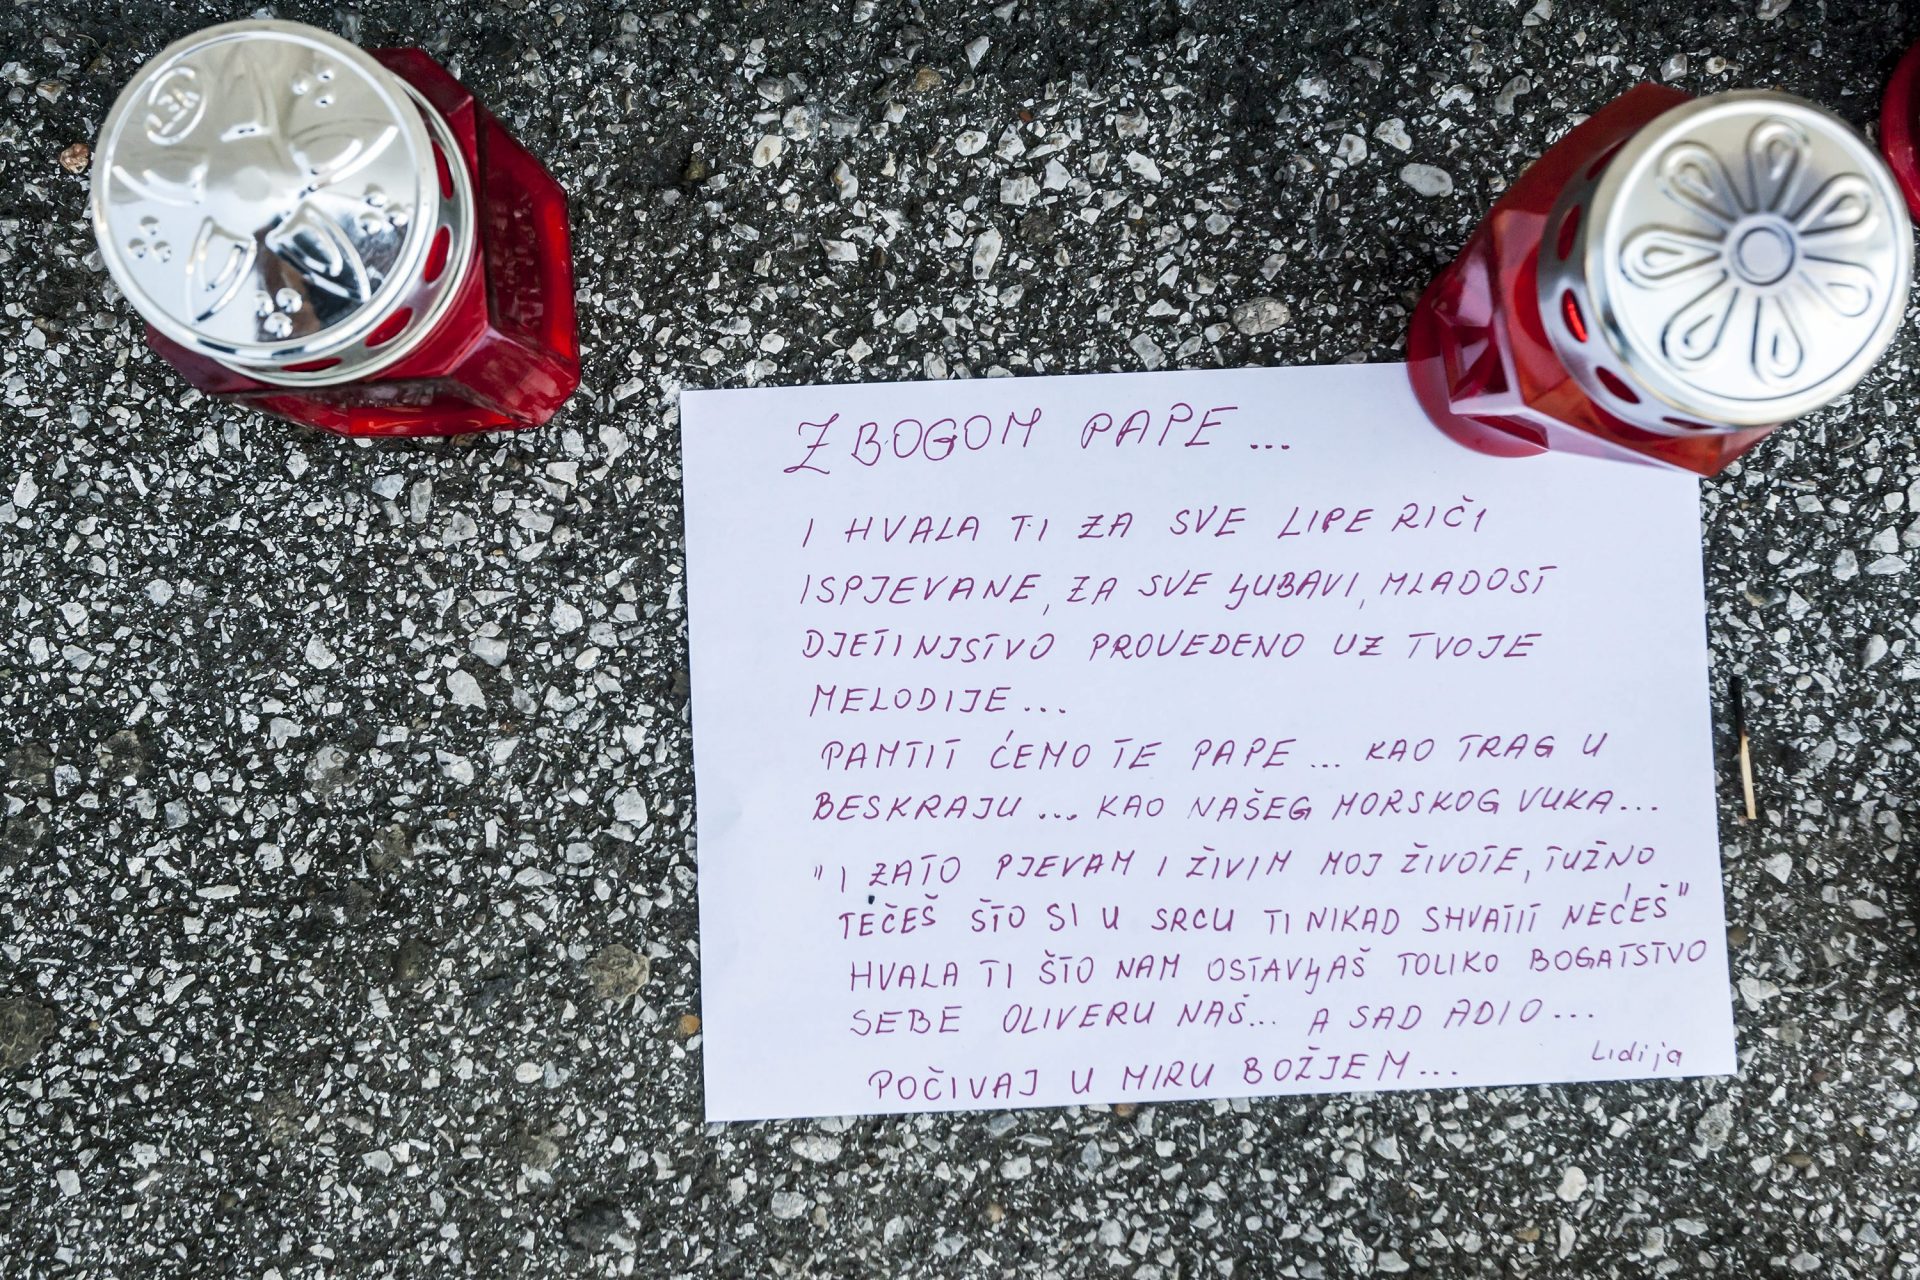 ZBOGOM PAPE...
I HVALA TI ZA SVE LIPE RIČI
ISPJEVANE, ZA SVE LJUBAVI, MLADOST
DJETINJSTVO PROVEDENO UZ TVOJE
MELODIJE...
PAMTIT ĆEMO TE PAPE... KAO TRAG U
BESKRAJU... KAO NAŠEG MORSKOG VUKA...
"I ZATO PJEVAM I ŽIVIM MOJ ŽIVOTE, TUŽNO
TEČEŠ ŠTO SI U SRCU TI NIKAD SHVATIT NEĆEŠ"
HVALA TI ŠTO NAM OSTAVLJAŠ TOLIKO BOGATSTVO
SEBE OLIVERU NAŠ... A SAD ADIO...
POČIVAJ U MIRU BOŽJEM...
Lidija